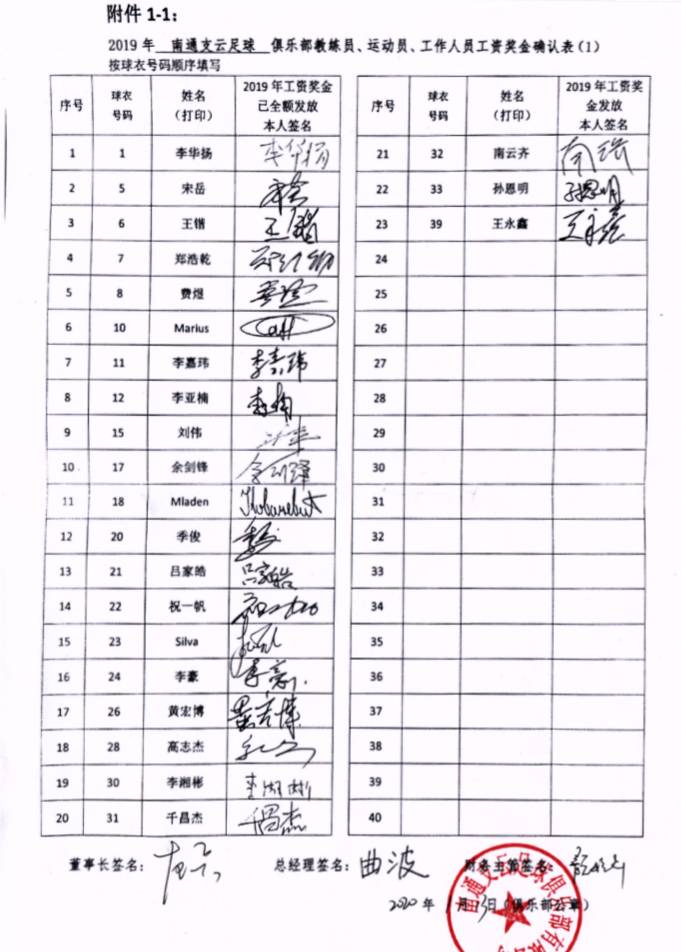 附件 1-1：
2019 年 南通支云足球 俱乐部教练员、运动员、工作人员工资奖金确认表（1）
按球衣号码顺序填写
序号 球衣号码 姓名（打印） 2019 年工资奖金已全额发放本人签名
1 1 李华扬 李华扬
2 5 宋岳
3 6 王锴 王锴
4 7 郑浩乾
5 8 费煜 费煜
6 10 Marius
7 11 李嘉玮 李嘉玮
8 12 李亚楠
9 15 刘伟
10 17 余剑锋 余剑锋
11 18 Mladen
12 20 季俊
13 21 吕家皓 吕家皓
14 22 祝一帆
15 23 Silva
16 24 李豪
17 26 黄宏博 黄宏博
18 28 高志杰
19 30 李湘彬 李湘彬
20 31 千昌杰
序号 球衣号码 姓名（打印） 2019 年工资奖金发放本人签名
21 32 南云齐
22 33 孙恩明 孙恩明
23 39 王永鑫 王永鑫
24
25
26
27
28
29
30
31
32
33
34
35
36
37
38
39
40
董事长签名： 总经理签名：曲波 财务主管签名：
2020 年 月 日（俱乐部公章）